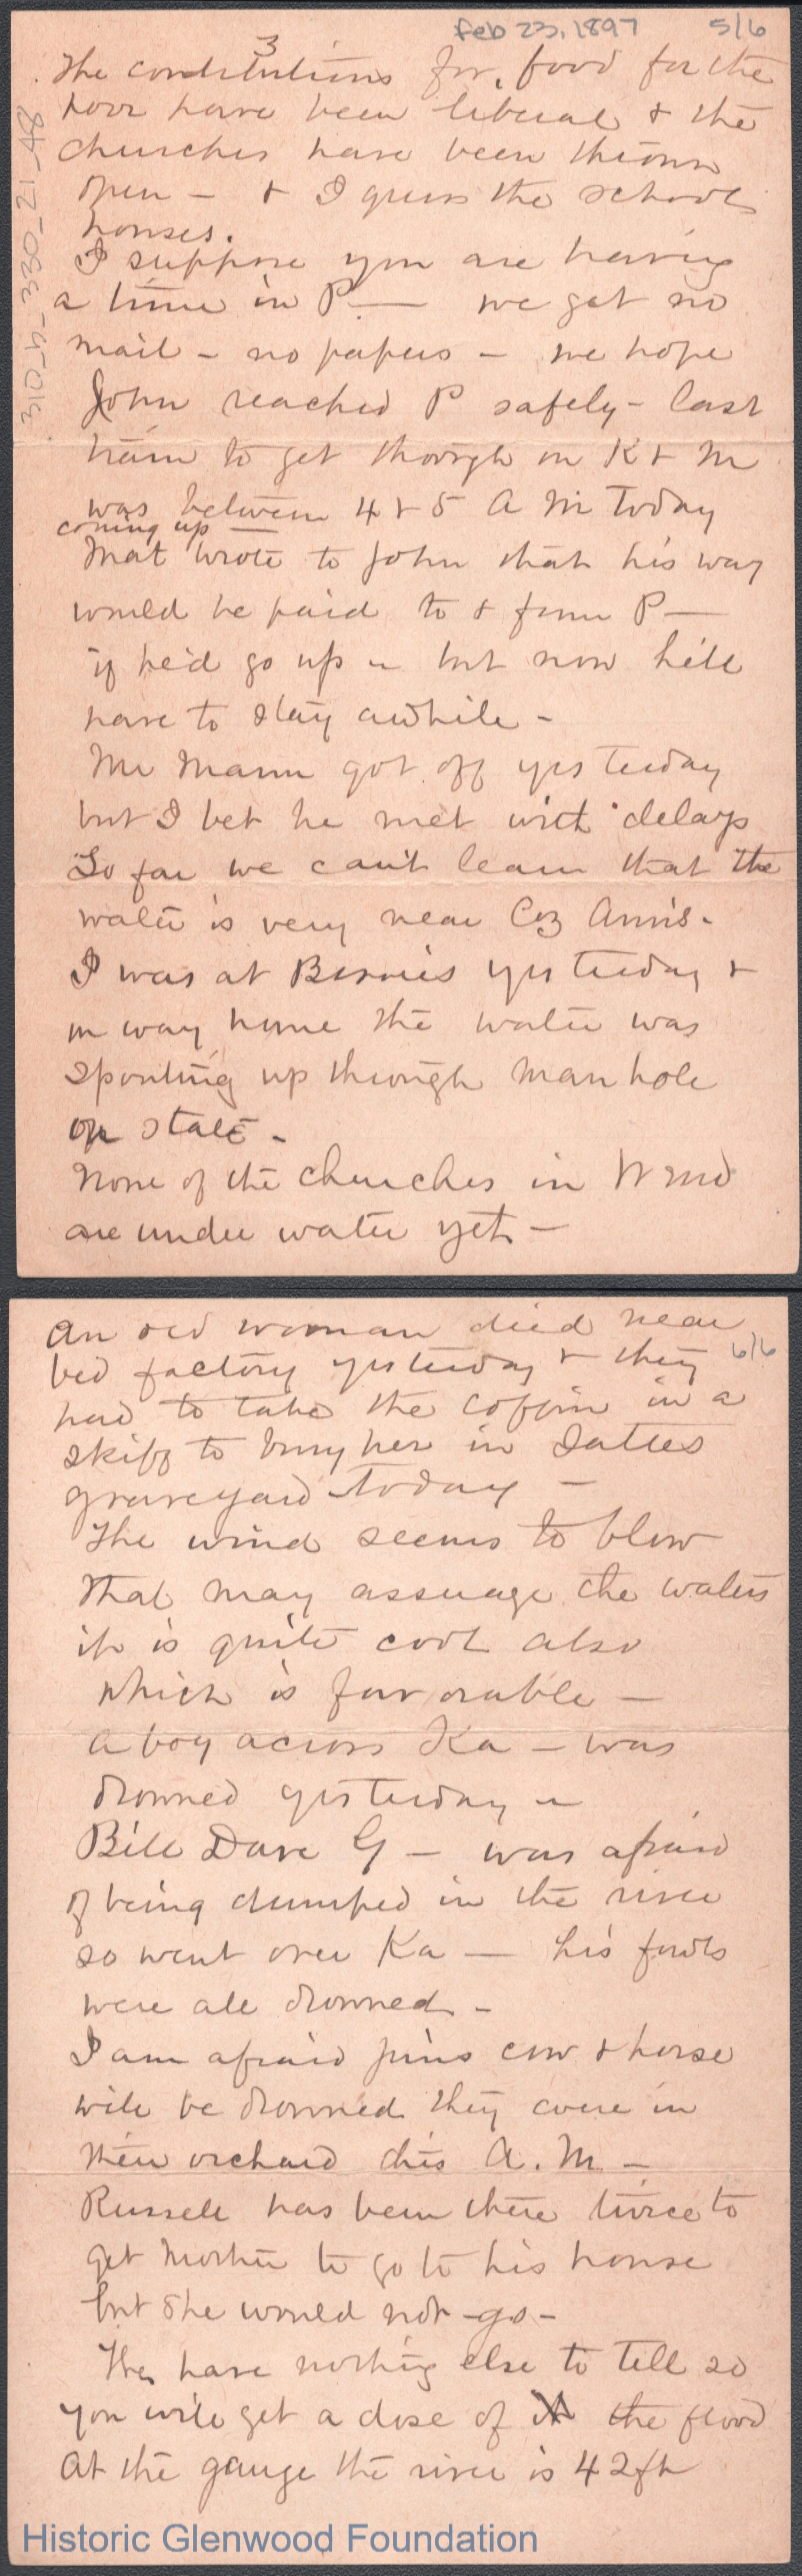 Feb 23, 1897 5/6
3
The contributions for food for the
poor have been liberal & the
churches have been thrown
open - & I guess the school
houses.
I suppose you are having
a time in P — we get no
mail - no papers - we hope
John reached P safely - last
train to get through on K & M
was between 4 & 5 A M today
coming up —
Mat wrote to John that his way
would be paid to & from P —
if he'd go up - but now he'll
have to stay awhile -
Mr Mann got off yesterday
but I bet he met with delays
So far we can't learn that the
water is very near Coz Ann's -
I was at Bessie's yesterday &
on way home the water was
spouting up through man hole
on State -
None of the churches in W end
are under water yet —
310_h_330_21_48
An old woman died near
bed factory yesterday & they 6/6
had to take the coffin in a
skiff to bury her in
graveyard today —
The wind seems to blow
that may assuage the waters
it is quite cool also
which is favorable —
a boy across Ka — was
drowned yesterday -
Bill Dave G — was afraid
of being dumped in the river
so went over Ka — his fowls
were all drowned -
I am afraid Jim's cow & horse
will be drowned they were in
their orchard this A. M —
Russell has been there twice to
get Mother to go to his house
but she would not go -
We have nothing else to tell so
you will get a dose of it the flood
At the gauge the river is 42 ft
Historic Glenwood Foundation